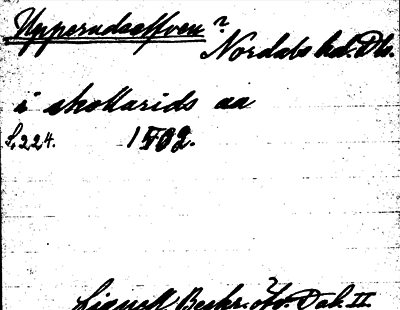 Upperudselfven ? Nordals hd. Dls.
i skållarids aa
S. 224. 1502.
Lignell Beskr. öv. Dal. II